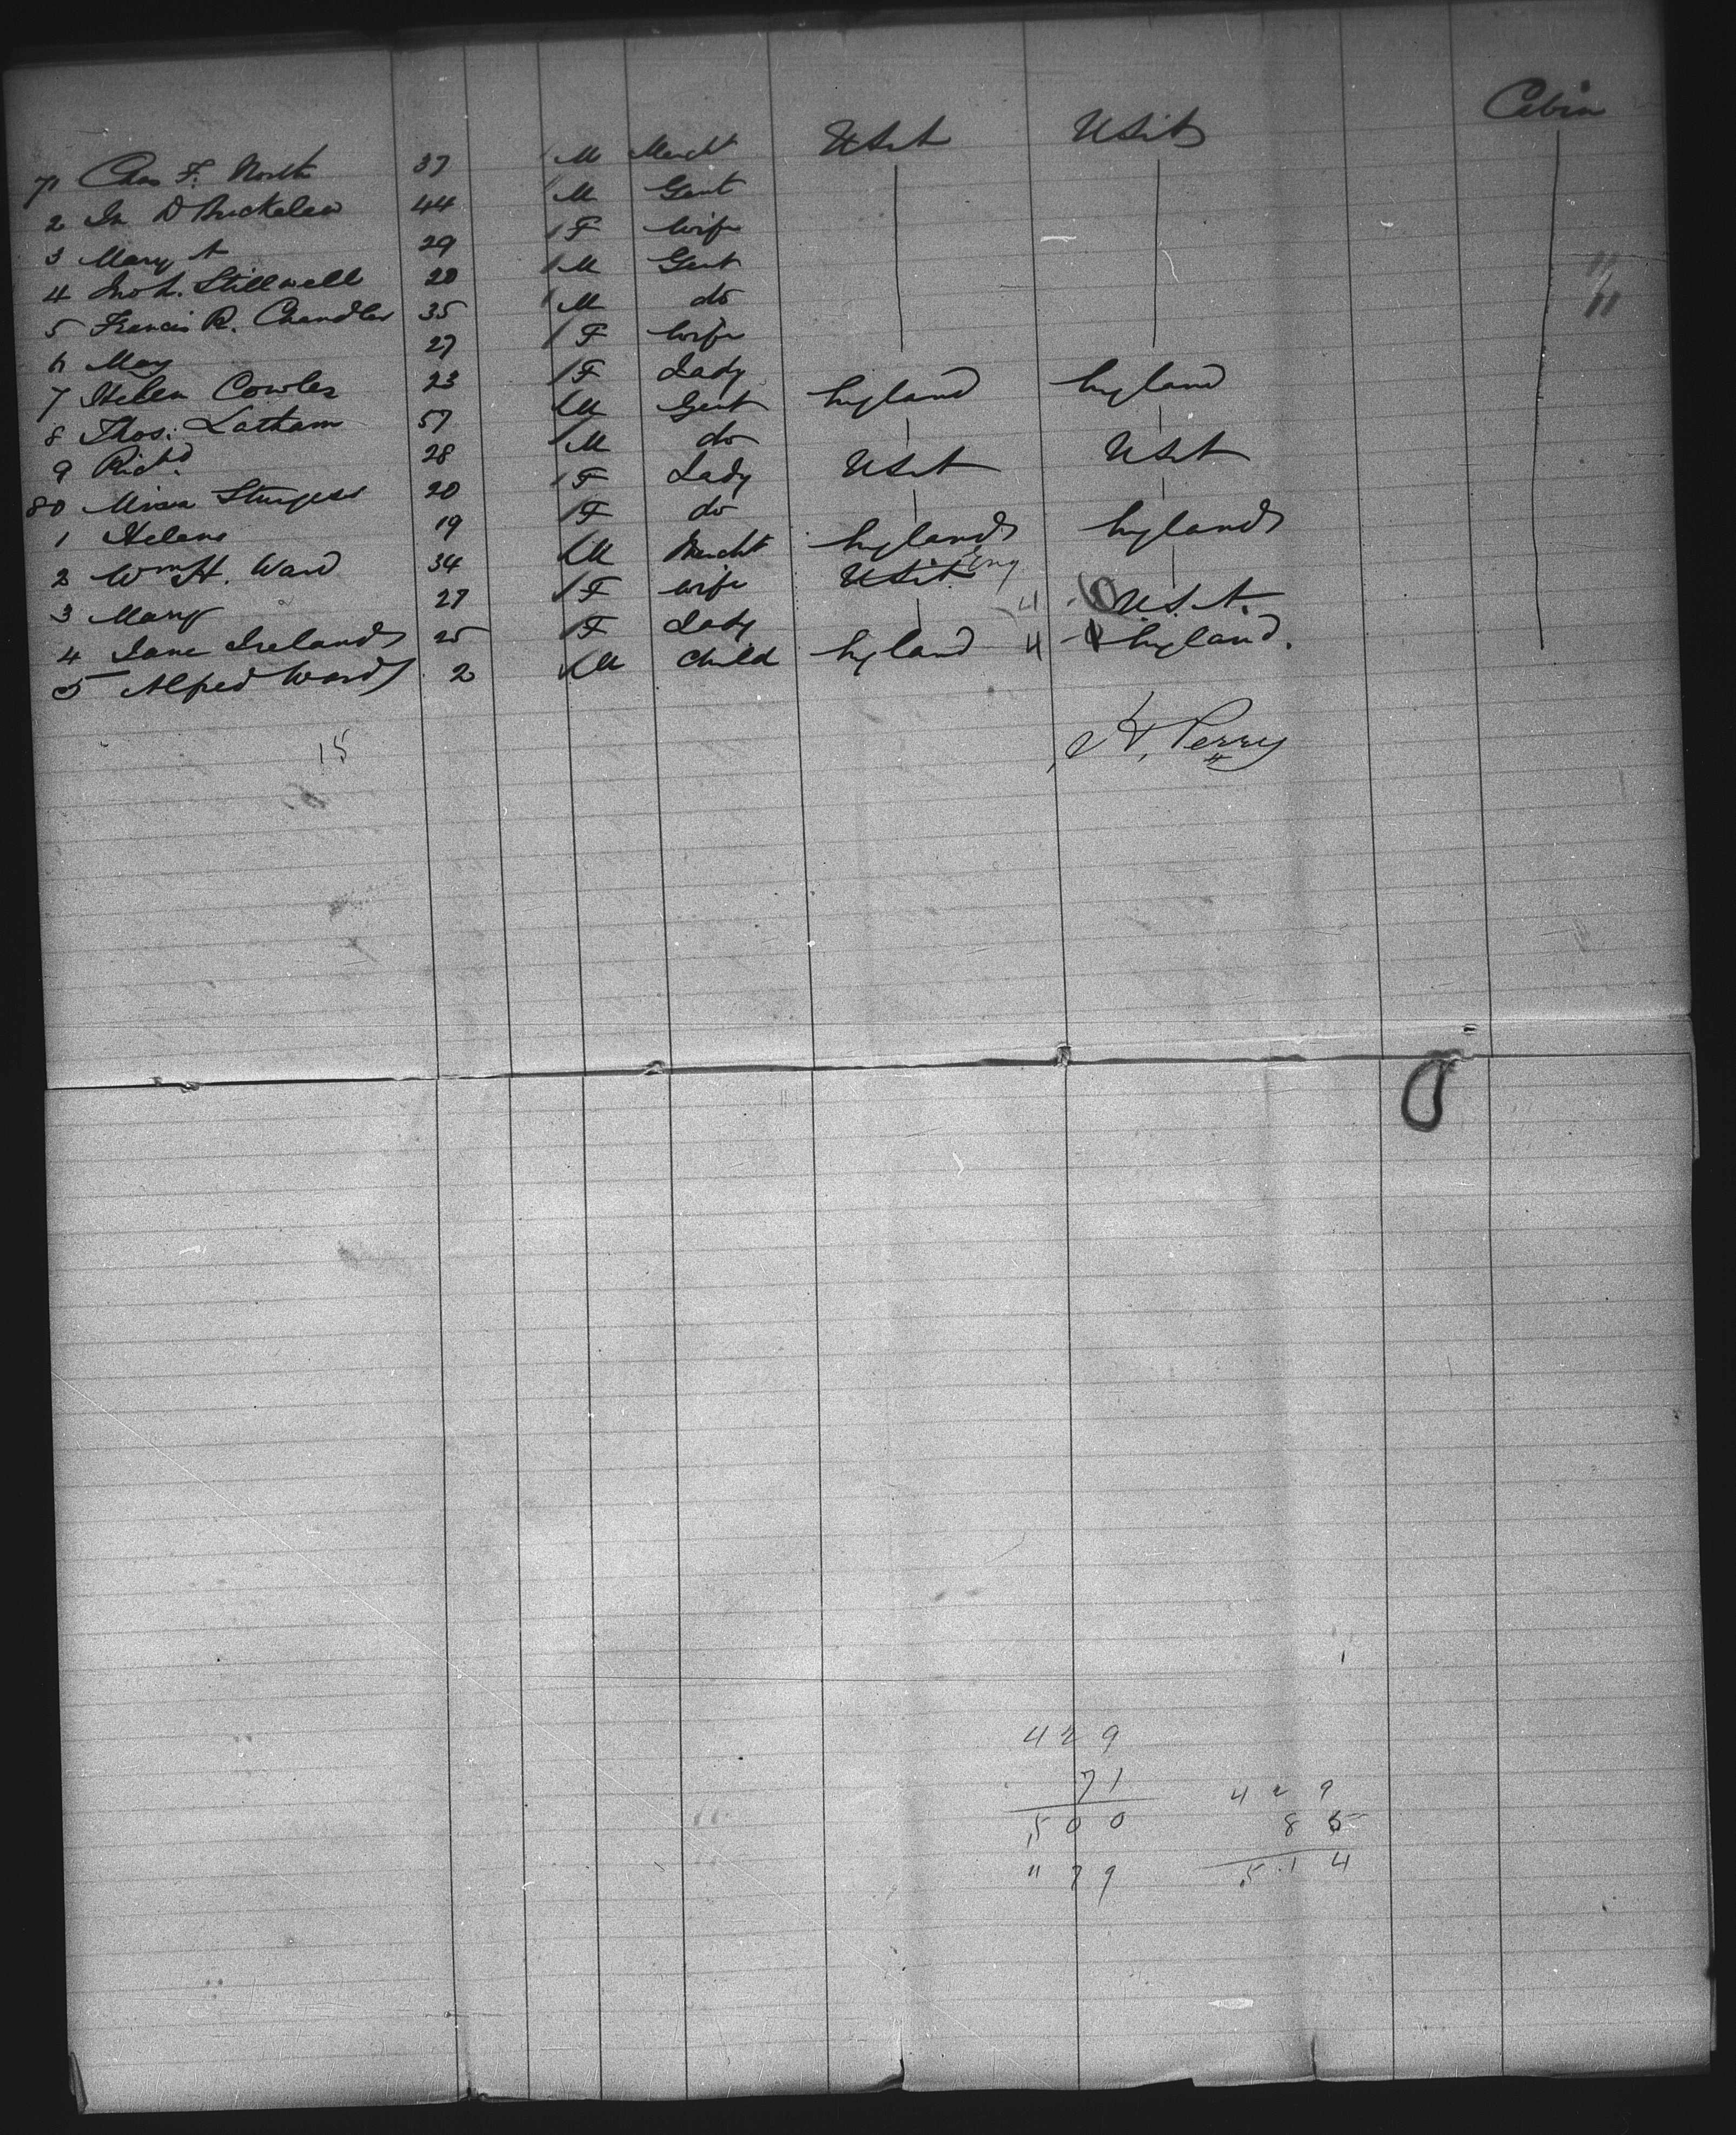 Cabin
71 Chas F. North 37 / M Marcht U.S.A U.S.A
2 D Buckalew 44 / M Gent
3 Mary A 29 / F Wife
4 Jno L. Stillwell 28 / M Gent
5 Francis R. Chandler 35 / M do
6 May 27 / F Wife
7 Helen Cowles 23 / F Lady
8 Thos. Latham 57 / M Gent England England
9 Richd 28 / M do
80 Sturgess 20 / F Lady U.S.A U.S.A
1 Helena 19 / F do
2 Wm H. Ward 34 / M Marcht England England
3 Mary 27 / F Wife
4 Jane Ireland 25 / F Lady U.S.A. Eng 4 U.S.A.
5 Alfred Ward 2 / M Child England 4 England.
15
H. Perry
429
71
500
" 79
429
85
514